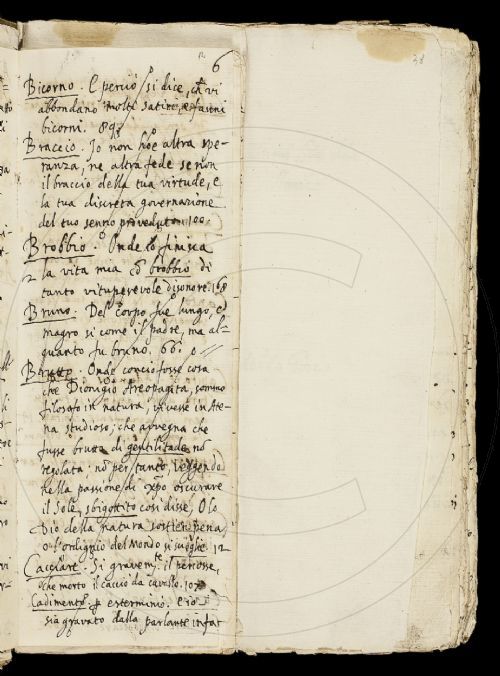 6
38
Bicorno. E perciò si dice, ch'vi
abbondano molti satiri, e fauni
bicorni. 89.
Braccio. Io non hoe altra spe-
ranza, ne altra fede se non
il braccio della tua virtude, e
la tua discreta governazione
del tuo senno proveduto. 100.
Brobbio. Onde lo finisca
la vita mia cō brobbio di
tanto vituperevole disonore. 168
Bruno. Del corpo fue lungo, e
magro si come il padre, ma al-
quanto fu bruno. 66.
Onde conciofosse cosa
che Dionigio Areopagita, sommo
filosofo in natura, vivesse in Ate-
na studioso; che avvegna che
fusse brutto di gentilitade nō
regolata: nō per tanto, veggendo
nella passione di xpo oscurare
il Sole, sbigottito così disse, O lo
Dio della natura sostien pena
o l'ordignio del Mondo si scioglie. 12
Cacciare. Si gravemte il percosse,
che morto il cacciò da cavallo. 107
Cadimento p esterminio. e io
sia gravato dalla parlante infat